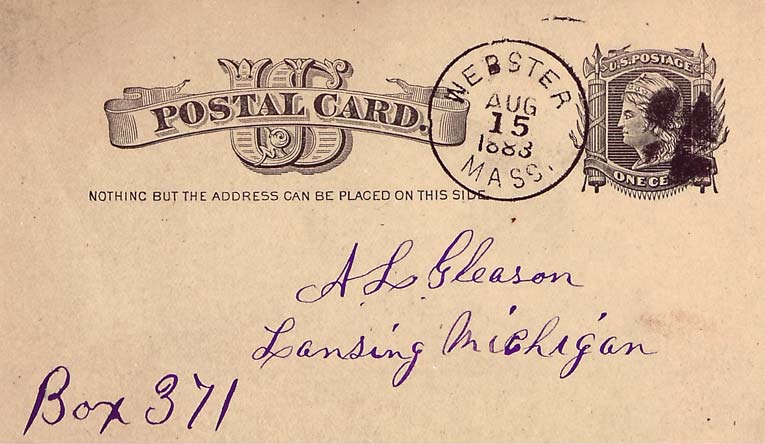 US
POSTAL CARD.
NOTHING BUT THE ADDRESS CAN BE PLACED ON THIS SIDE.
WEBSTER
AUG
15
1883
MASS.
U.S. POSTAGE
ONE CE
A L Gleason
Lansing Michigan
Box 371